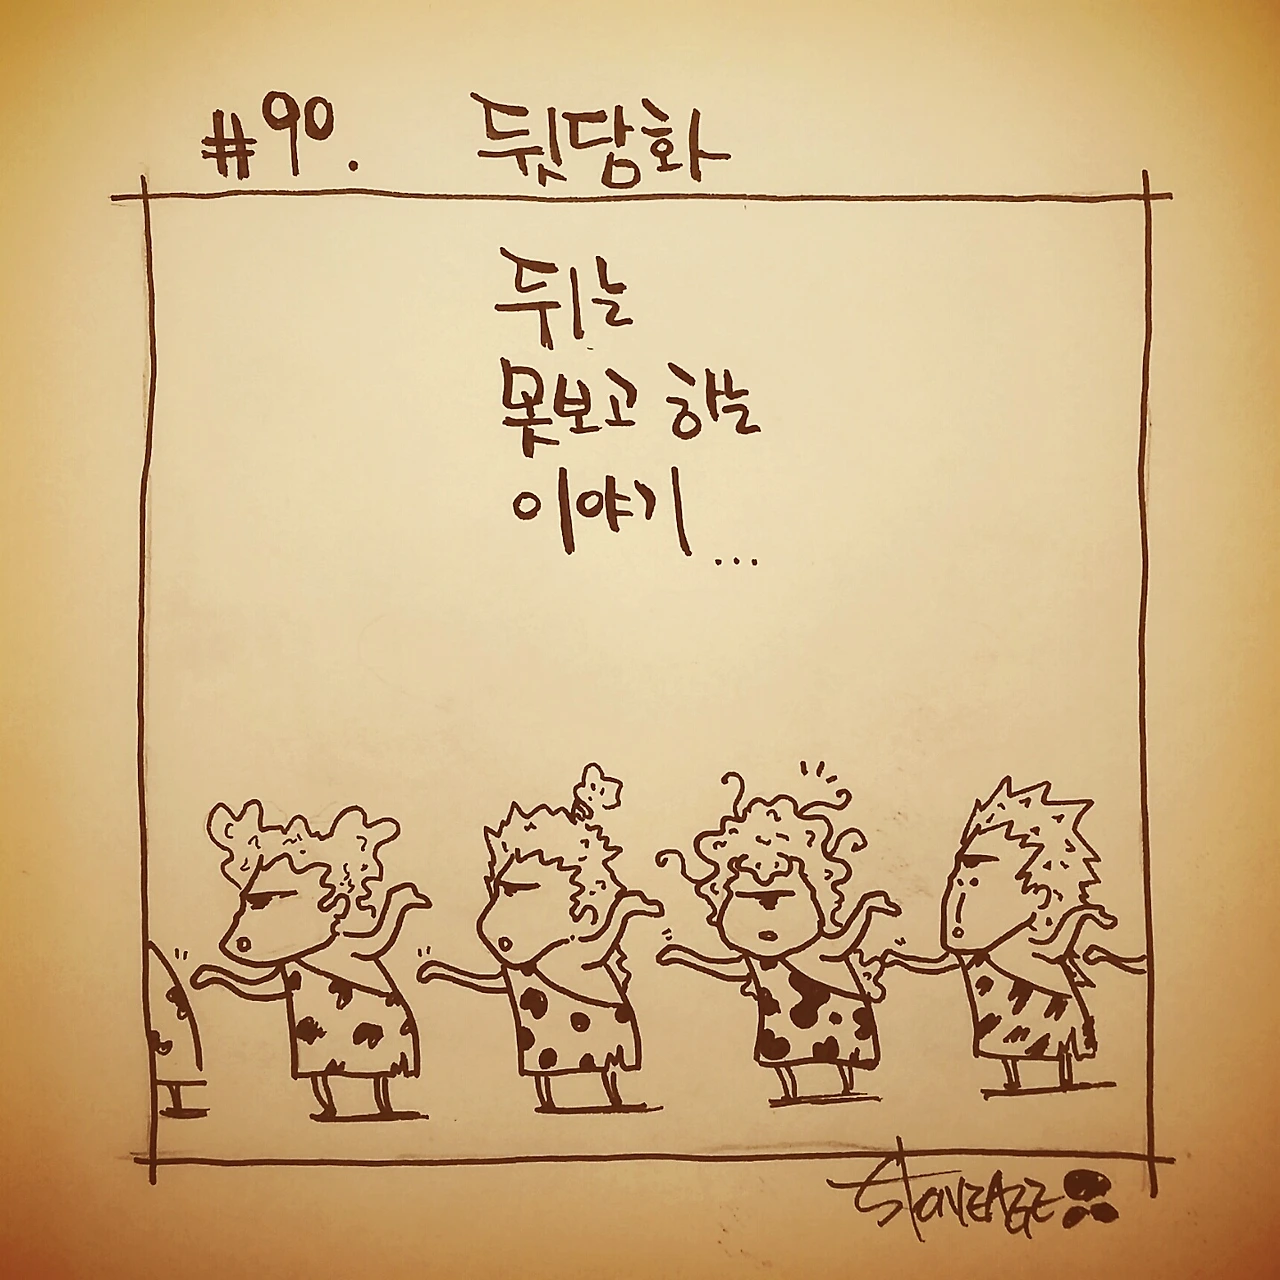 #90. 뒷담화
뒤는
못보고 하는
이야기...
StoneAge